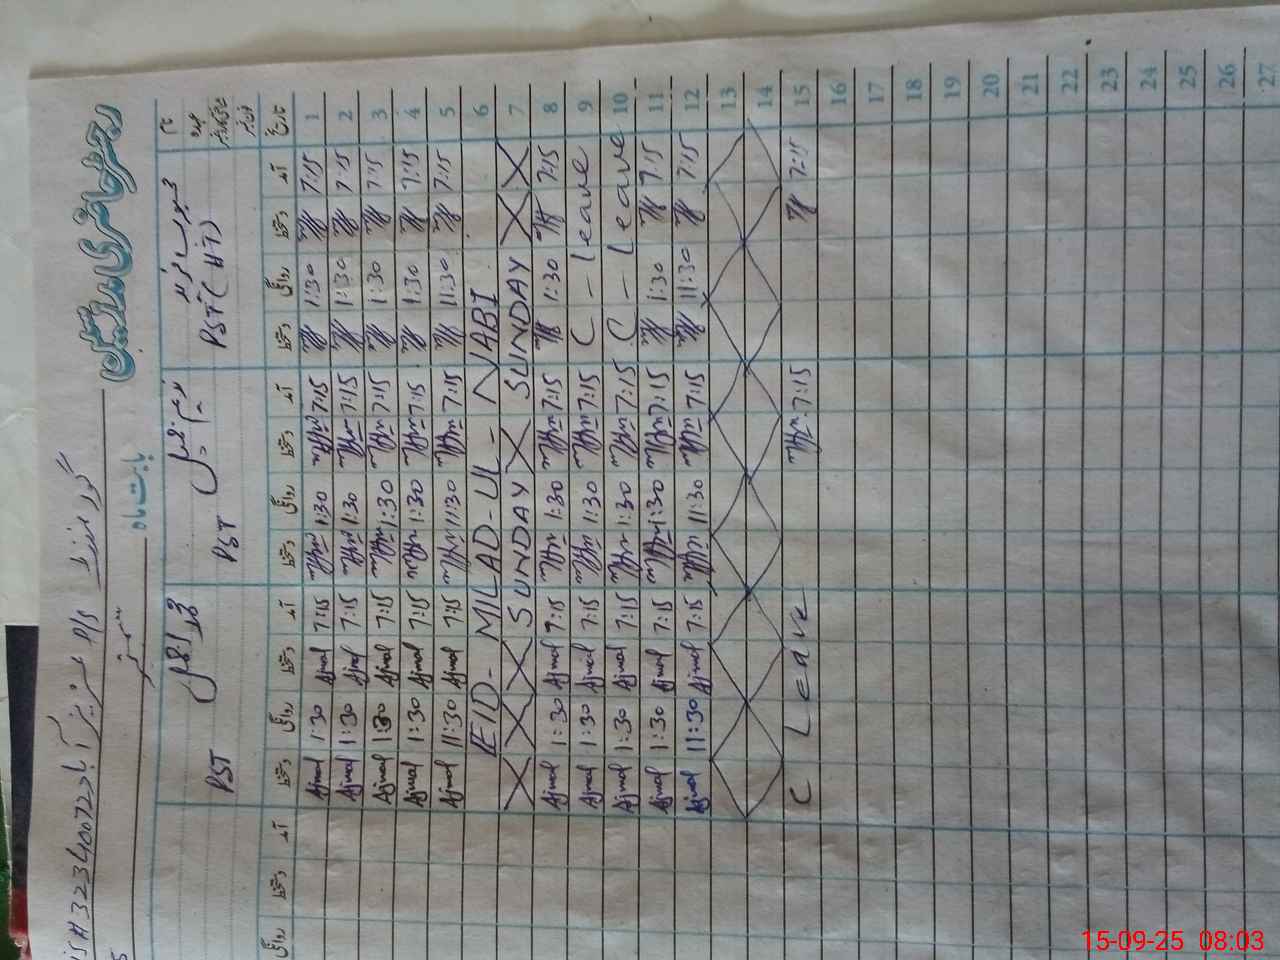 رجسٹر حاضری مدرسین
گورنمنٹ P/S عزیز آباد 32340072
بابت ماہ ستمبر
نام
عہدہ
PST (H.T) PST PST
تاریخ آمد دستخط روانگی دستخط آمد دستخط روانگی دستخط آمد دستخط روانگی دستخط آمد دستخط روانگی
1 7:15 1:30 7:15 1:30 7:15 Ajmal 1:30 Ajmal
2 7:15 1:30 7:15 1:30 7:15 Ajmal 1:30 Ajmal
3 7:15 1:30 7:15 1:30 7:15 Ajmal 1:30 Ajmal
4 7:15 1:30 7:15 1:30 7:15 Ajmal 1:30 Ajmal
5 7:15 11:30 7:15 11:30 7:15 Ajmal 11:30 Ajmal
6 EID - MILAD-UL - NABI
7 SUNDAY SUNDAY
8 7:15 1:30 7:15 1:30 7:15 Ajmal 1:30 Ajmal
9 C - Leave 7:15 1:30 7:15 Ajmal 1:30 Ajmal
10 C - Leave 7:15 1:30 7:15 Ajmal 1:30 Ajmal
11 7:15 1:30 7:15 1:30 7:15 Ajmal 1:30 Ajmal
12 7:15 11:30 7:15 11:30 7:15 Ajmal 11:30 Ajmal
13
14
15 7:15 7:15 C Leave
16
17
18
19
20
21
22
23
24
25
26
27
15-09-25 08:03